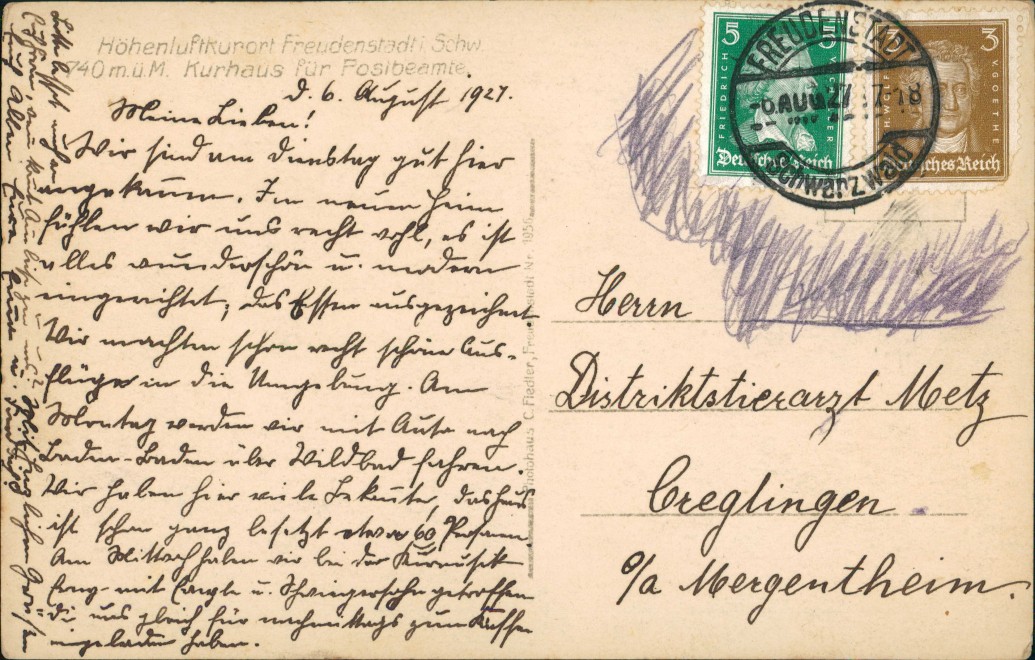 Höhenluftkurort Freudenstadt i. Schw.
740 m. ü. M. Kurhaus für Postbeamte.
d. 6. August 1927.
Meine Lieben!
Wir sind am Dienstag gut hier
angekomm. Im neuen Heim
fühlen wir uns recht wohl, es ist
alles wunderschön u. modern
eingerichtet; das Essen ausgezeichnet
Wir machten schon recht schöne Aus-
flüge in die Umgebung. Am
Montag werden wir mit Auto nach
Baden-Baden über Wildbad fahren.
Wir haben hier viele Bekannte, das Haus
ist schon ganz besetzt etwa 60 Personen
Am Mittwoch haben wir bei der Kurmusik
mit u. Schwiegersohn getroffen
die uns gleich für nachmittags zum Kaffee
eingeladen haben.
Mit herzlichen Grüßen
Euch allen Eure
Photohaus C. Fiedler, Freudenstadt Nr. 1956
5 5
FRIEDRICH V. SCHILLER
Deutsches Reich
3 3
J. H. WOLFG. V. GOETHE
Deutsches Reich
FREUDENSTADT
6.AUG.27.17-18
(Schwarzwald)
Herrn
Distriktstierarzt Metz
Creglingen
o/a Mergentheim.